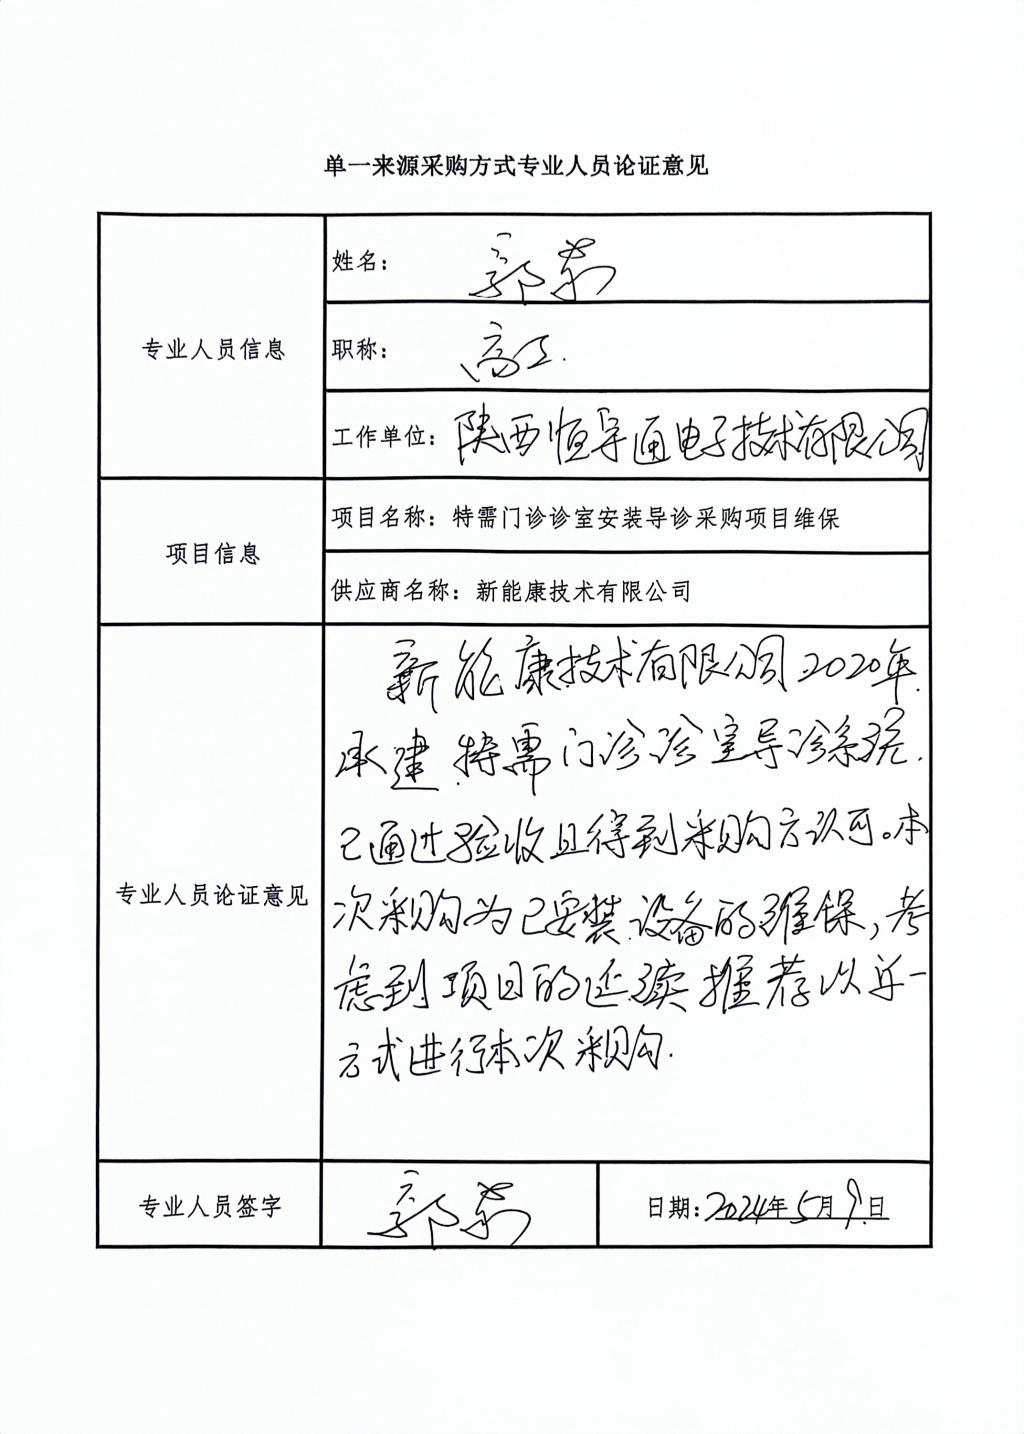 单一来源采购方式专业人员论证意见
专业人员信息
姓名：郭
职称：高工.
工作单位：陕西恒宇通电子技术有限公司
项目信息
项目名称：特需门诊诊室安装导诊采购项目维保
供应商名称：新能康技术有限公司
专业人员论证意见
新能康技术有限公司2020年
承建特需门诊诊室导诊系统.
已通过验收且得到采购方认可。本
次采购为已安装设备的维保,考
虑到项目的延续推荐以单一
方式进行本次采购.
专业人员签字
郭
日期:2024年5月9日